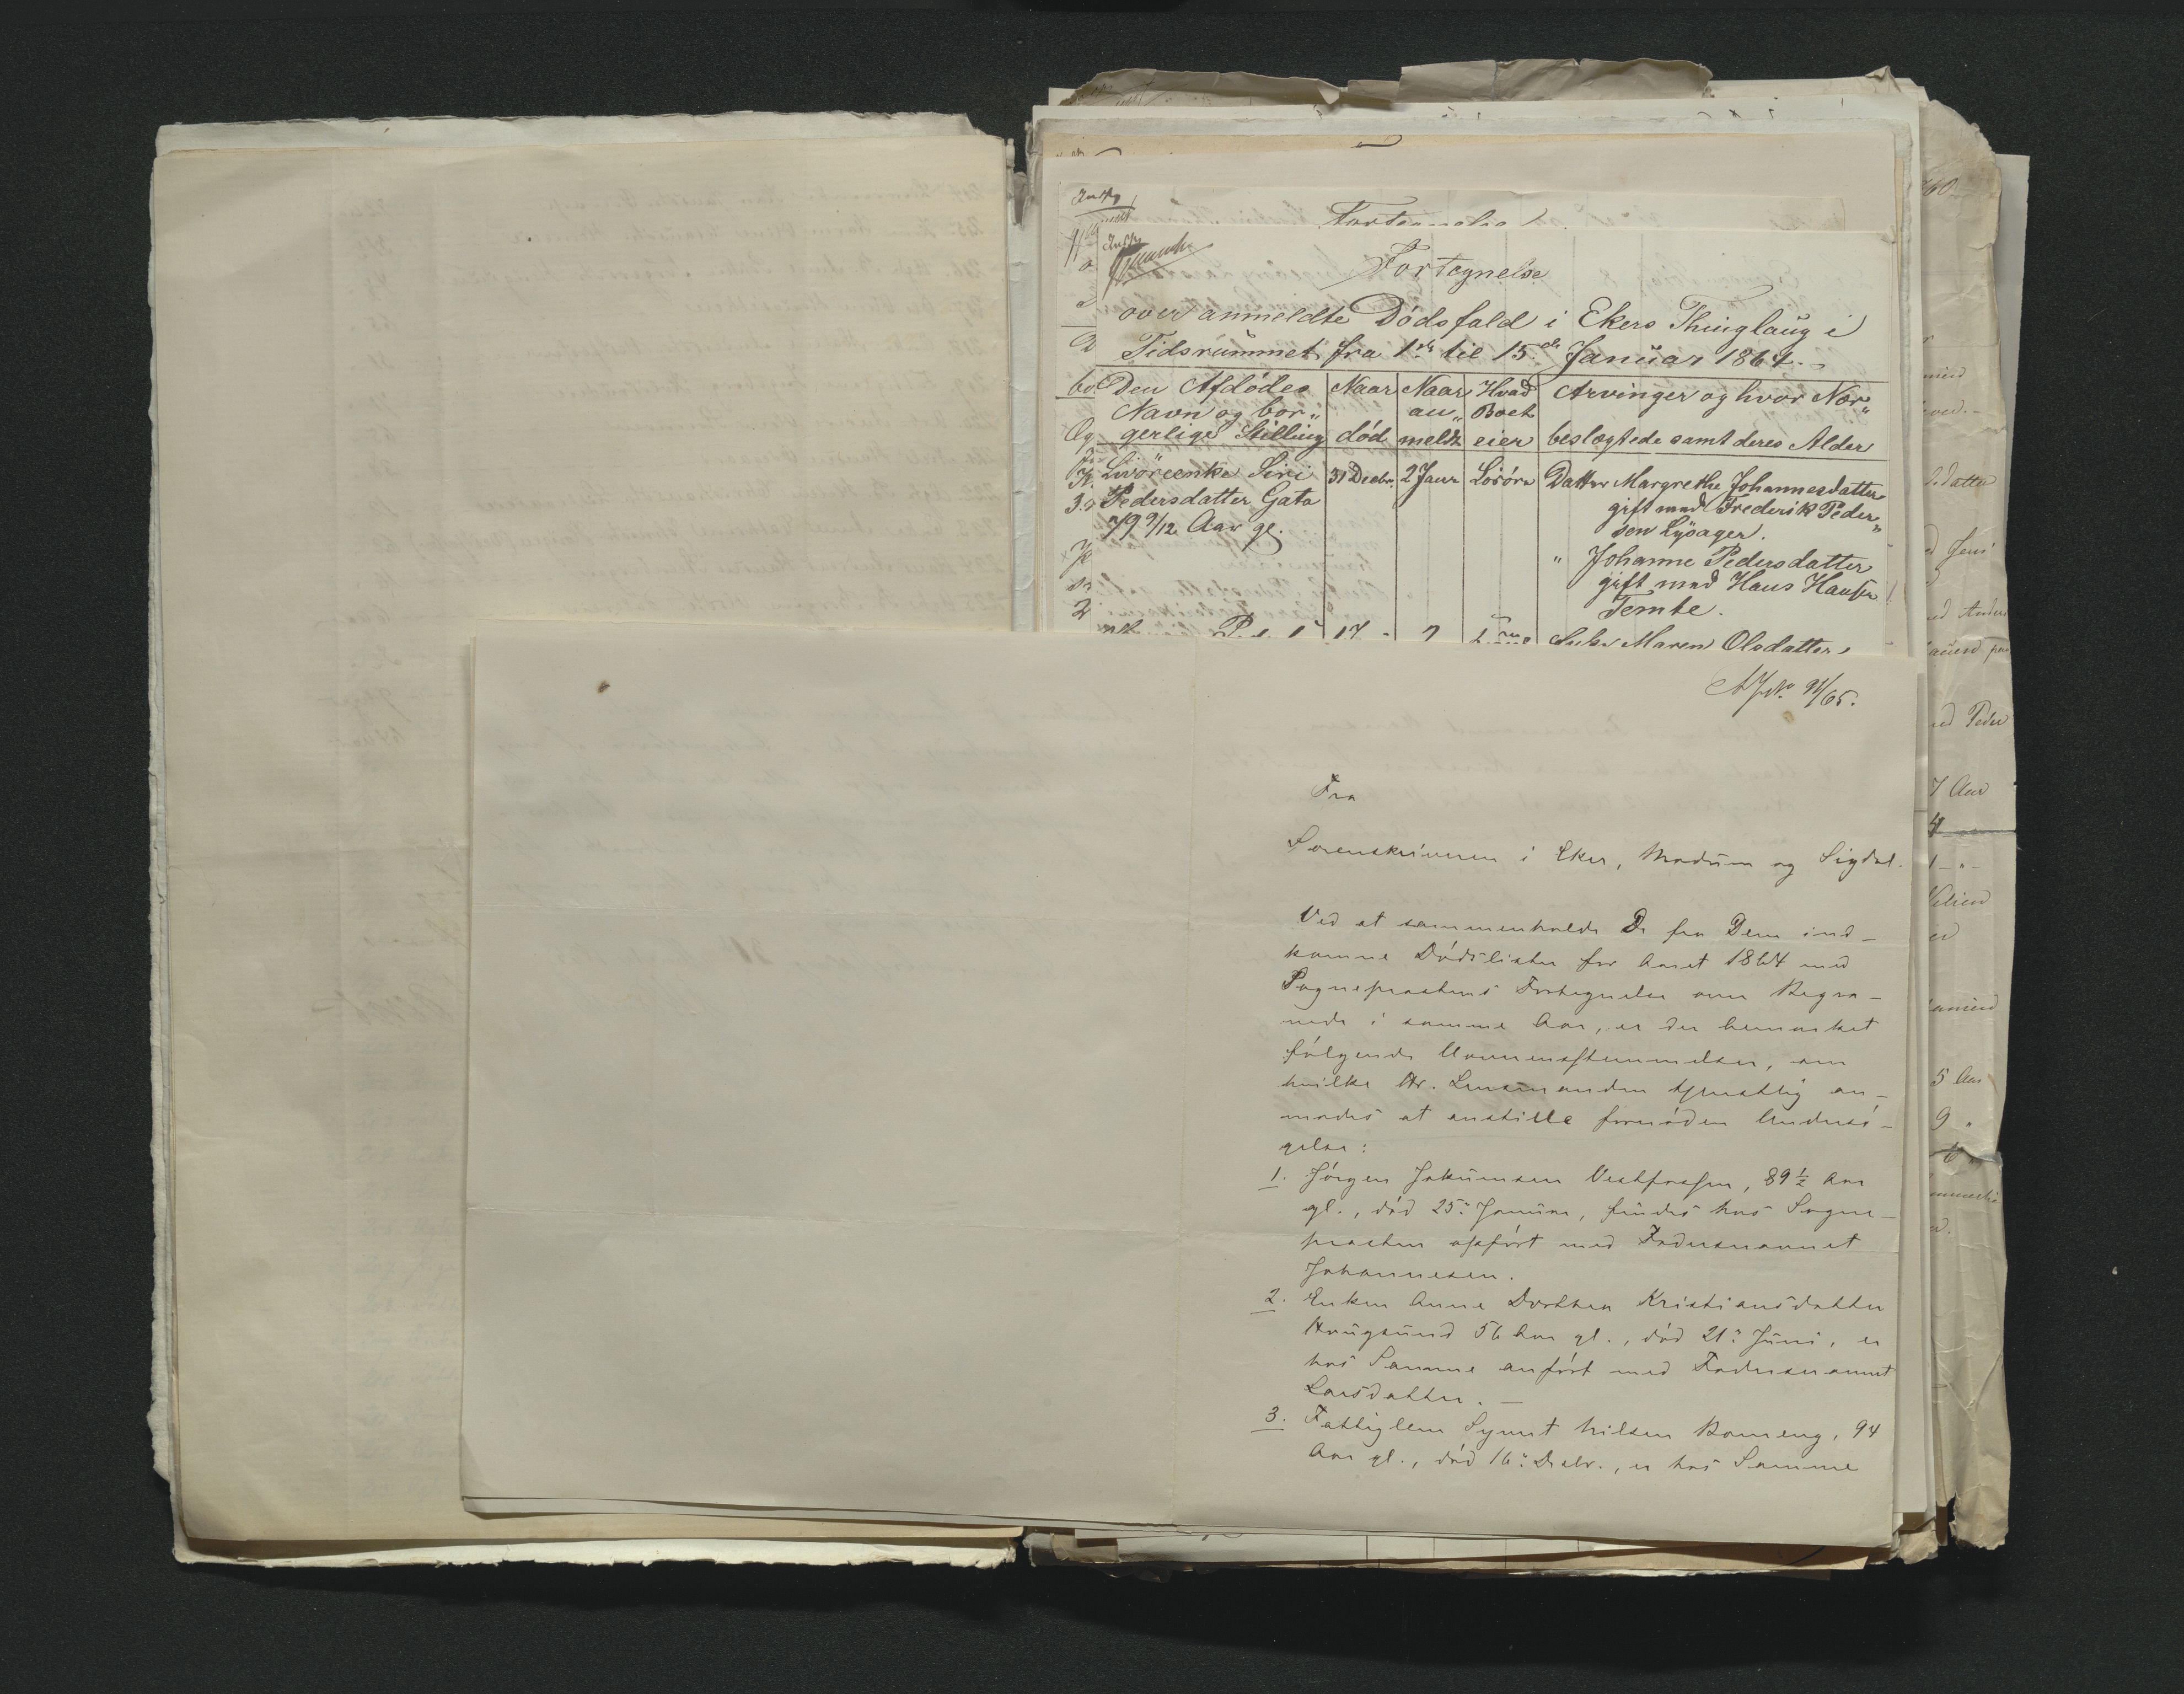 Fortegnelse
Fortegnelse
over anmeldte Dödsfald i Ekers Thinglaug i
Tidsrummet fra 1ste til 15de Januar 1864.
Den Afdödes Navn og bor„gerlige Stilling | Naar död | Naar an„meldt | Hvad Boet eier | Arvinger og hvor Nær„beslægtede samt deres Alder
Siri | 31 Decbr. | 2 Janr | Lösöre | Datter Margrethe Johannesdatter
Pedersdatter Gata
79 9/12 Aar gl.
gift med Frederik Peder„
sen Lysager.
" Johanne Pedersdatter
gift med Hans Hansen
Temte.
Maren Olsdatter
No 91/65.
Fra
Sorenskriveren i Eker, Modum og Sigdal.
Ved at sammenholde De fra Dem ind-
komne Dødslister for Aaret 1864 med
Sognepræstens Fortegnelse over Begra-
vede i samme Aar, er der bemærket
følgende Uoverensstemmelser, om
hvilke Hr. Lensmanden tjenstlig an-
modes at anstille fornøden Undersø-
gelse:
1. Jörgen Jokumsen Vestfossen, 89 1/2 Aar
gl., död 25. Januar, findes hos Sogne-
præsten opfört med Fadersnavnet
Johannesen.
2. Enken Anne Dorthea Kristiansdatter
Hougsund 56 Aar gl., död 21. Juni, er
hos Samme anfört med Fadersnavnet
Larsdatter. —
3. Fattiglem Syvert Nilsen Borneng, 94
Aar gl., död 16. Decbr., er hos Samme
7 Aar
5 Aar
9 "